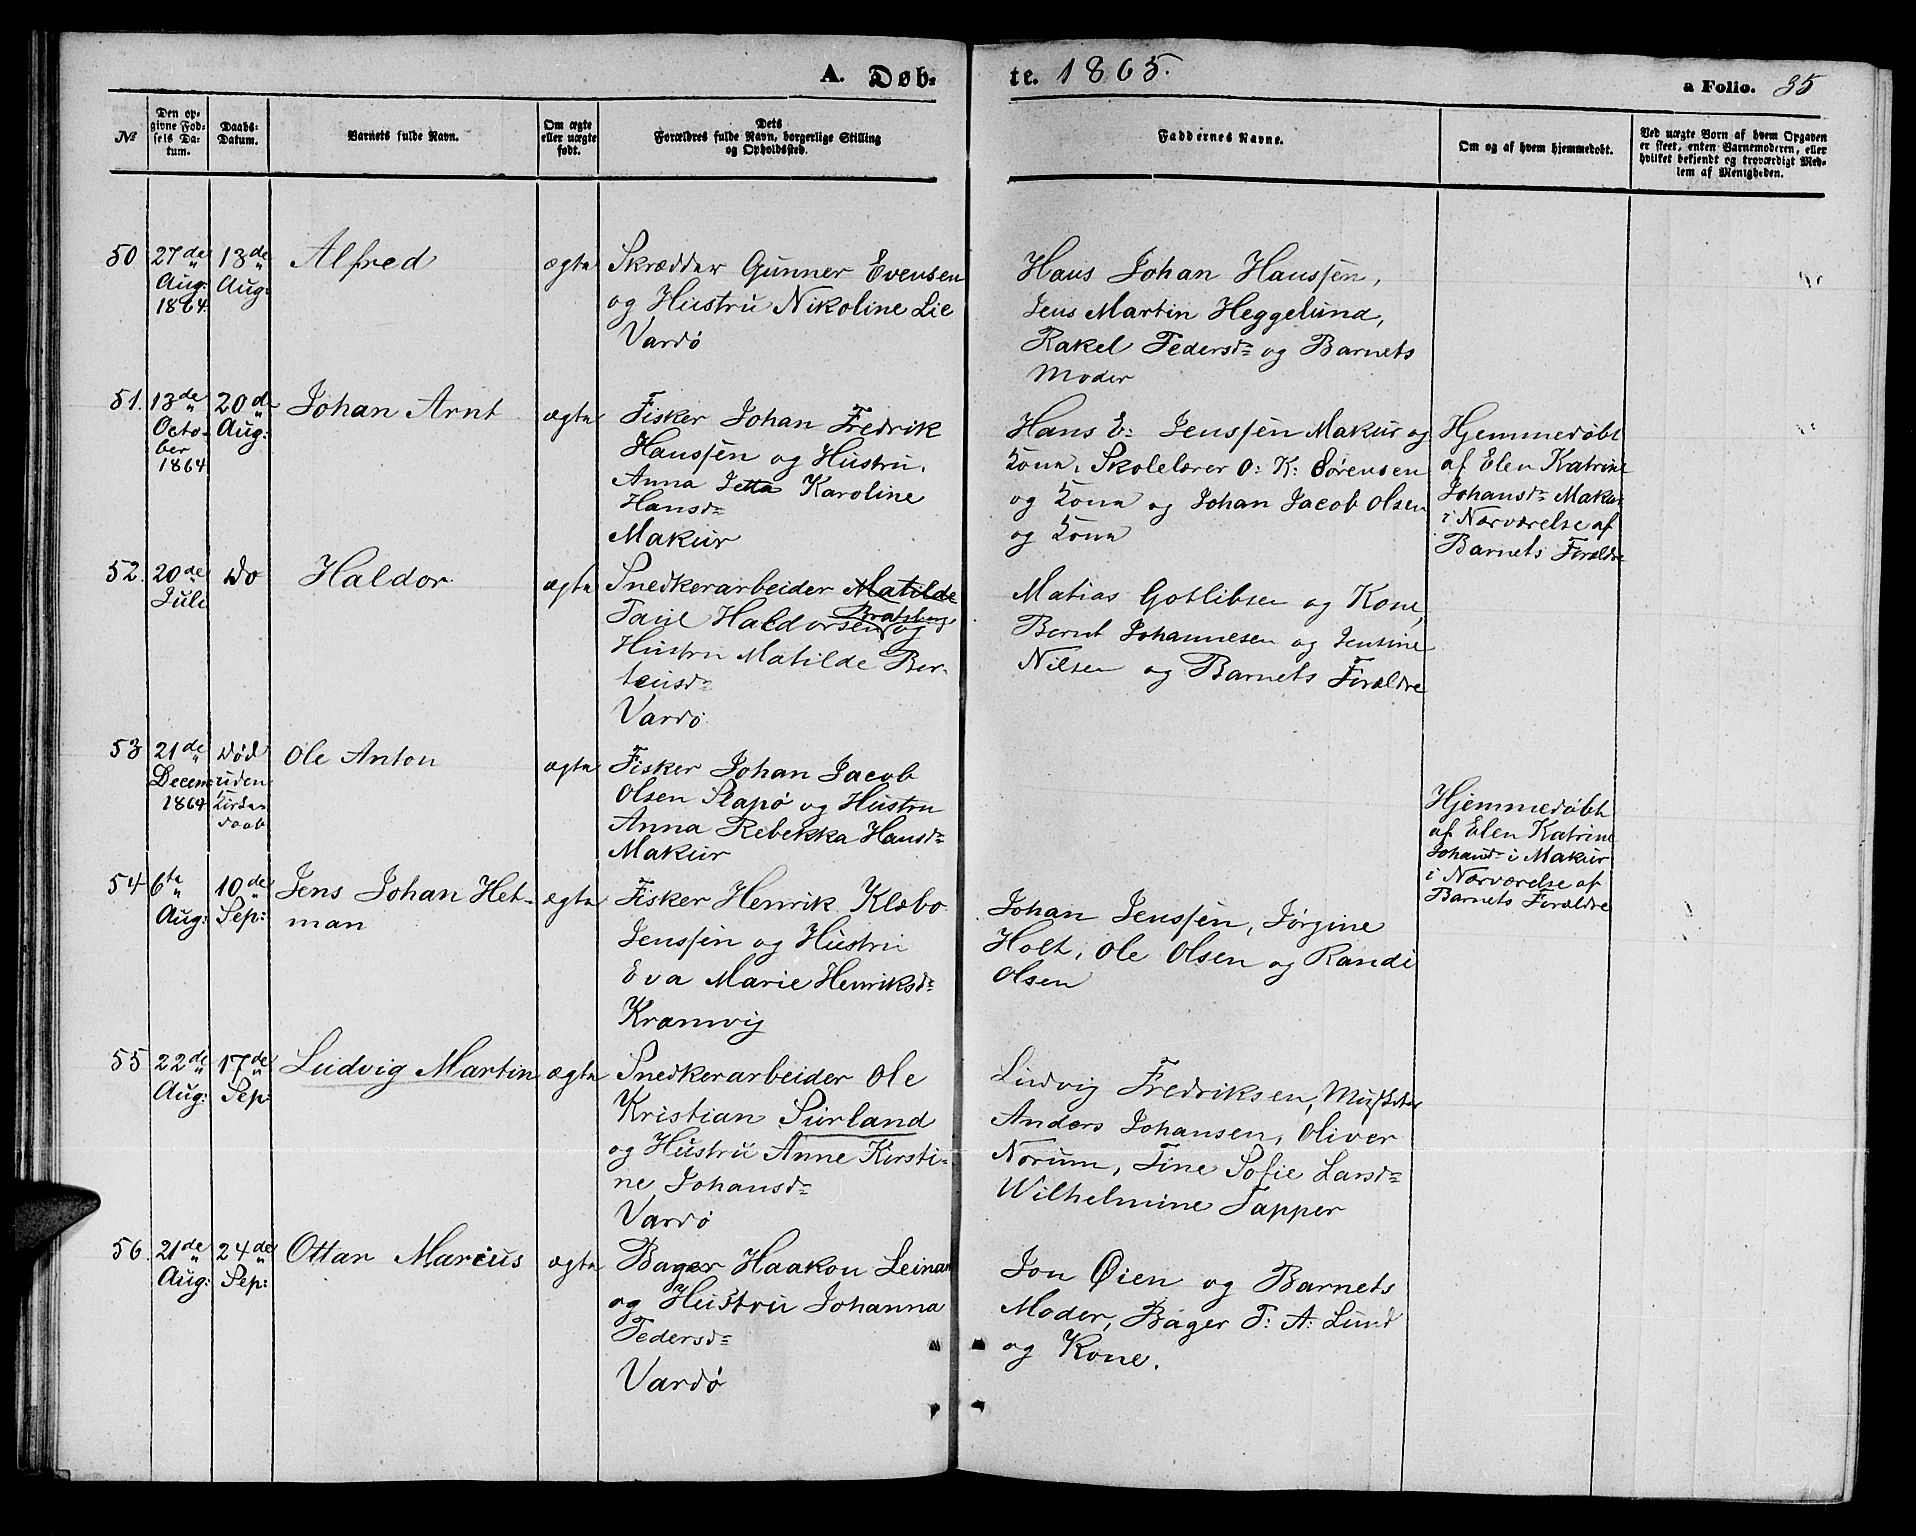 A. Døb-
te. 1865.
a Folio. 35
№
Den op-
givne Fød-
sels Da-
tum.
Daabs-
Datum.
Barnets fulde Navn.
Om ægte
eller uægte
født.
Dets
Forældres fulde Navn, borgerlige Stilling
og Opholdssted.
Faddernes Navne.
Om og af hvem hjemmedøbt.
Ved uægte Børn af hvem Opgaven
er skeet, enten Barnemoderen, eller
hvilket bekjendt og troværdigt Med-
lem af Menigheden.
50
27de
Aug:
1864
13de
Aug:
Alfred
ægte
Skrædder Gunner Evensen
og Hustru Nikoline Lie
Vardø
Hans Johan Hanssen,
Jens Martin Heggelund,
Rakel Pedersd= og Barnets
Moder
51.
13de
Octo-
ber
1864
20de
Aug:
Johan Arnt
ægte
Fisker Johan Fredrik
Hanssen og Hustru
Anna Jetta Karoline
Hansd=
Makur
Hans E: Jenssen Makur og
Kone, Skolelærer O: K: Sørensen
og Kone og Johan Jacob Olsen
og Kone
Hjemmedøbt
af Elen Katrine
Johansd= Makur
i Nærværelse af
Barnets Forældre
52.
20de
Juli
Do
Haldor
ægte
Snedkerarbeider Matilde
Bratsberg
Paul Haldorsen og
Hustru Matilde Ber-
teusd=
Vardø
Matias Gotlibsen og Kone,
Bernt Johannesen og Jentine
Nilsen og Barnets Forældre
53
21de
Decem:
1864
Død
uden
Kirke-
daab
Ole Anton
ægte
Fisker Johan Jacob
Olsen Slapø og Hustru
Anna Rebekka Hansd=
Makur
Hjemmedøbt
af Elen Katrine
Johansd= i Makur
i Nærværelse af
Barnets Forældre
54
6te
Aug:
10de
Sep:
Jens Johan Het-
man
ægte
Fisker Henrik Klæbo
Jenssen og Hustru
Eva Marie Henriksd=
Kramvig
Johan Jenssen, Jørgine
Holt, Ole Olsen og Randi
Olsen
55
22de
Aug:
17de
Sep:
Ludvig Martin
ægte
Snedkerarbeider Ole
Kristian Surland
og Hustru Anne Kirsti-
ne Johansd=
Vardø
Ludvig Fredriksen,
Anders Johansen, Oliver
Norum, Tine Sofie Larsd=
Wilhelmine Tapper
56.
21de
Aug:
24de
Sep:
Ottar Marcus
ægte
Bager Haakon Leinan
og Hustru Johanna
Pedersd=
Vardø
Jon Øien og Barnets
Moder, Bager P: A: Lund
og Kone.